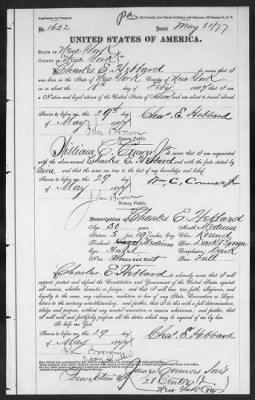 No. 1622 Issued May 31/77
UNITED STATES OF AMERICA.
STATE OF New York
COUNTY OF New York
I, Charles E. Hebbard do swear that I was
born in the State of New York County of New York
on the 18th day of
a Native and loyal citizen of the United States of America, and am about to travel abroad
Sworn to before me, this 29th
day of May 1877
Chas. E. Hebbard
John Brown
Notary Public
I, William C. Conner Jr do swear that I am acquainted
with the above-named Charles E. Hebbard and with the facts stated by
him, and that the same are true to the best of my knowledge and belief.
Sworn to before me, this 29
day of May 1877
Wm. C. Conner Jr
Notary Public
Description of Charles E. Hebbard
Age 30 years
Mouth Medium
Stature 5 feet inches, Eng.
Chin Round
Forehead Medium
Hair Dark Brown
Eyes Hazel
Complexion Dark
Nose Prominent
Face Full
I, Charles E. Hebbard do solemnly swear that I will
support, protect and defend the Constitution and Government of the United States against
all enemies, whether domestic or foreign; and that I will bear true faith, allegiance, and
loyalty to the same, any ordinance, resolution or law of any State Convention or Legislature
to the contrary notwithstanding; and further, that I do this with a full determination,
pledge and purpose, without any mental reservation or evasion whatsoever; and further, that
I will well and faithfully perform all the duties which may be required of me by law.
So help me God.
Sworn to before me, this 29
day of May 1877
Chas. E. Hebbard
James Conner's Sons
28 Centre St
New York City